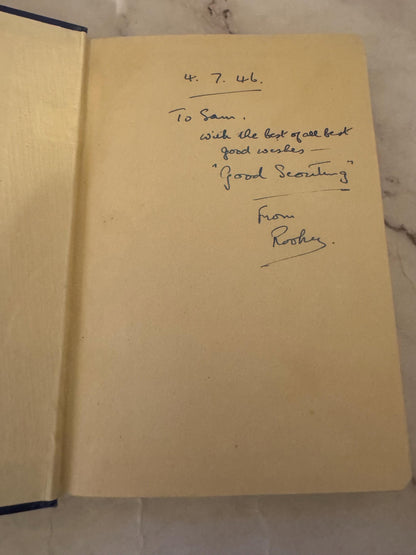 4. 7. 46.
To Sam.
with the best of all best
good wishes —
"Good Scouting"
From